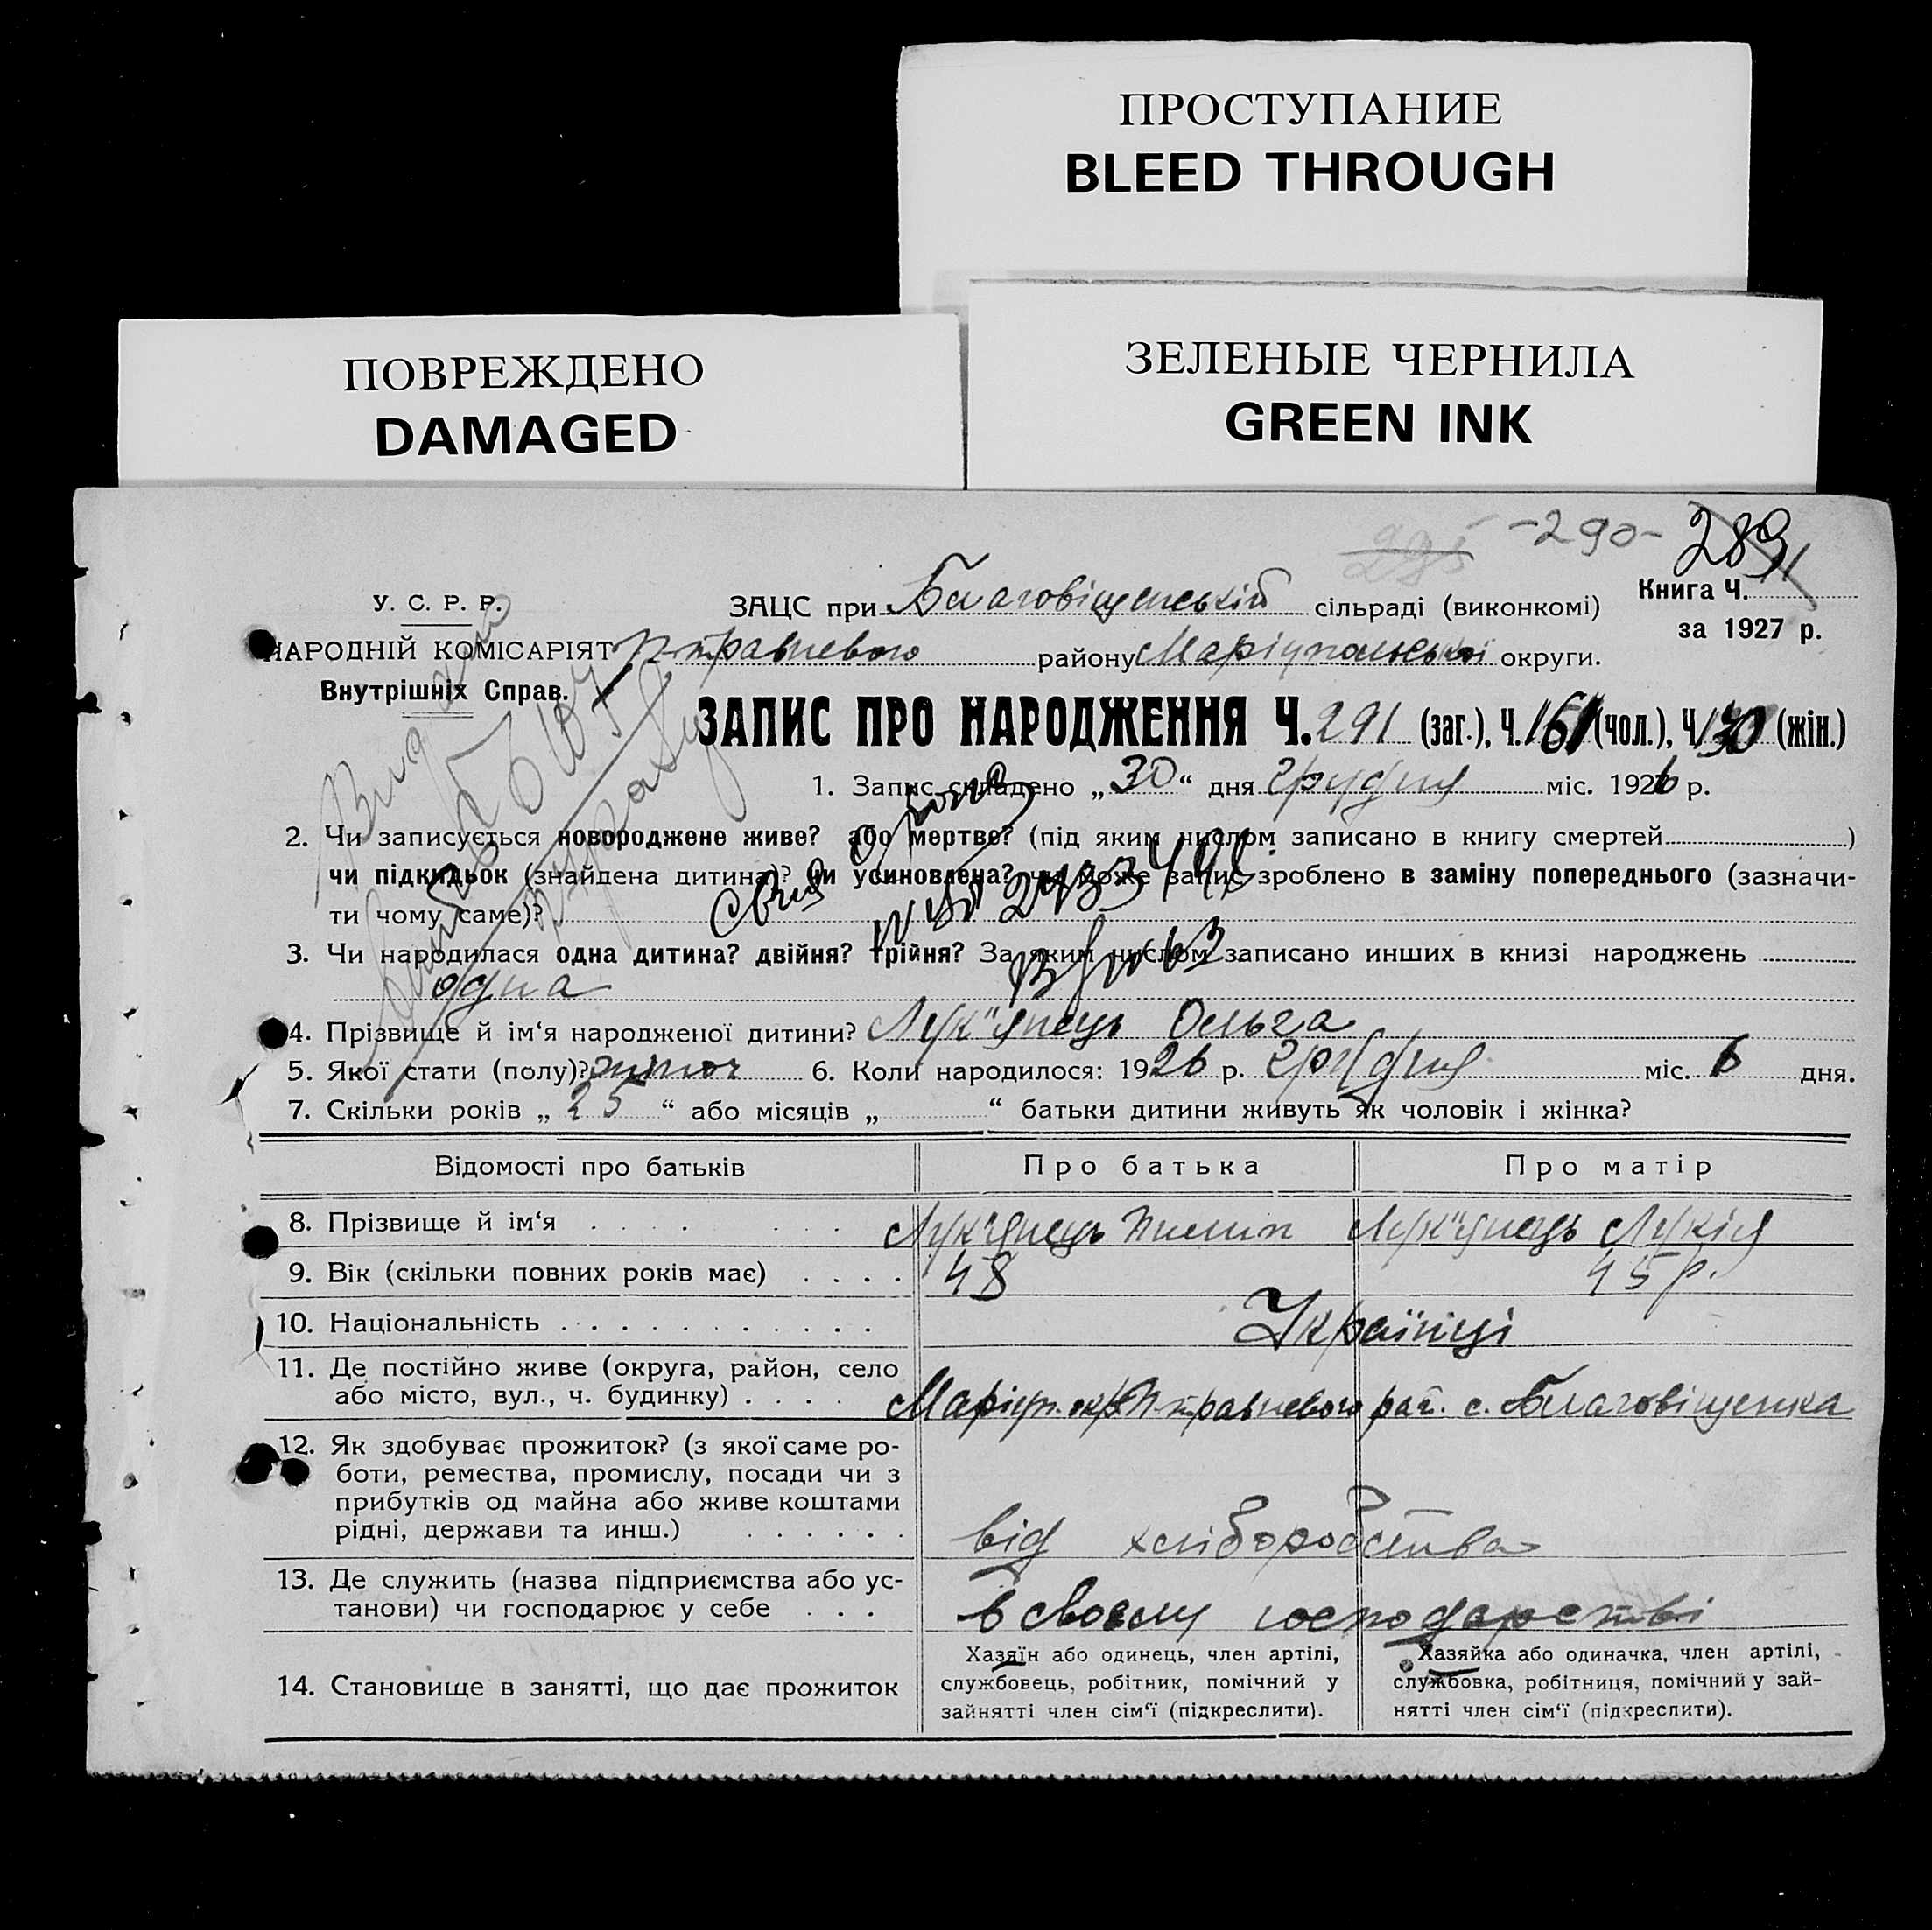 ПРОСТУПАНИЕ
BLEED THROUGH
ПОВРЕЖДЕНО
DAMAGED
ЗЕЛЕНЫЕ ЧЕРНИЛА
GREEN INK
-290-
У. С. Р. Р.
НАРОДНІЙ КОМІСАРІЯТ
Внутрішніх Справ.
Книга Ч.
за 1927 р.
ЗАЦС при Благовіщенській сільраді (виконкомі)
П травневого району Маріупольської округи.
ЗАПИС ПРО НАРОДЖЕННЯ Ч. 291 (заг.), Ч. 161 (чол.), Ч. 130 (жін.)
1. Запис складено „30“ дня грудня міс. 1926 р.
2. Чи записується новороджене живе? або мертве? (під яким числом записано в книгу смертей )
чи підкидьок (знайдена дитина)? чи усиновлена? чи може запис зроблено в заміну попереднього (зазначи-
ти чому саме)?
3. Чи народилася одна дитина? двійня? трійня? За яким числом записано инших в книзі народжень
одна
4. Прізвище й ім‘я народженої дитини? Лук"янець Ольга
5. Якої стати (полу)? жіноч 6. Коли народилося: 1926 р. грудня міс. 6 дня.
7. Скільки років „ 25 “ або місяців „ “ батьки дитини живуть як чоловік і жінка?
Відомості про батьків Про батька Про матір
8. Прізвище й ім‘я . . . . Лук"янець Пилип Лук"янець Лукія
9. Вік (скільки повних років має) . . . . 48 45 р.
10. Національність . . . . . . . . . . . Українці
11. Де постійно живе (округа, район, село
або місто, вул., ч. будинку) . . . . Маріуп. окр. П травневого рай. с. Благовіщенка
12. Як здобуває прожиток? (з якої саме ро-
боти, ремества, промислу, посади чи з
прибутків од майна або живе коштами
рідні, держави та инш.) . . . . . . від хліборобства
13. Де служить (назва підприємства або ус-
танови) чи господарює у себе . . . в своєму господарстві
14. Становище в занятті, що дає прожиток
Хазяїн або одинець, член артілі,
службовець, робітник, помічний у
зайнятті член сім‘ї (підкреслити).
Хазяйка або одиначка, член артілі,
службовка, робітниця, помічний у зай-
нятті член сім‘ї (підкреслити).